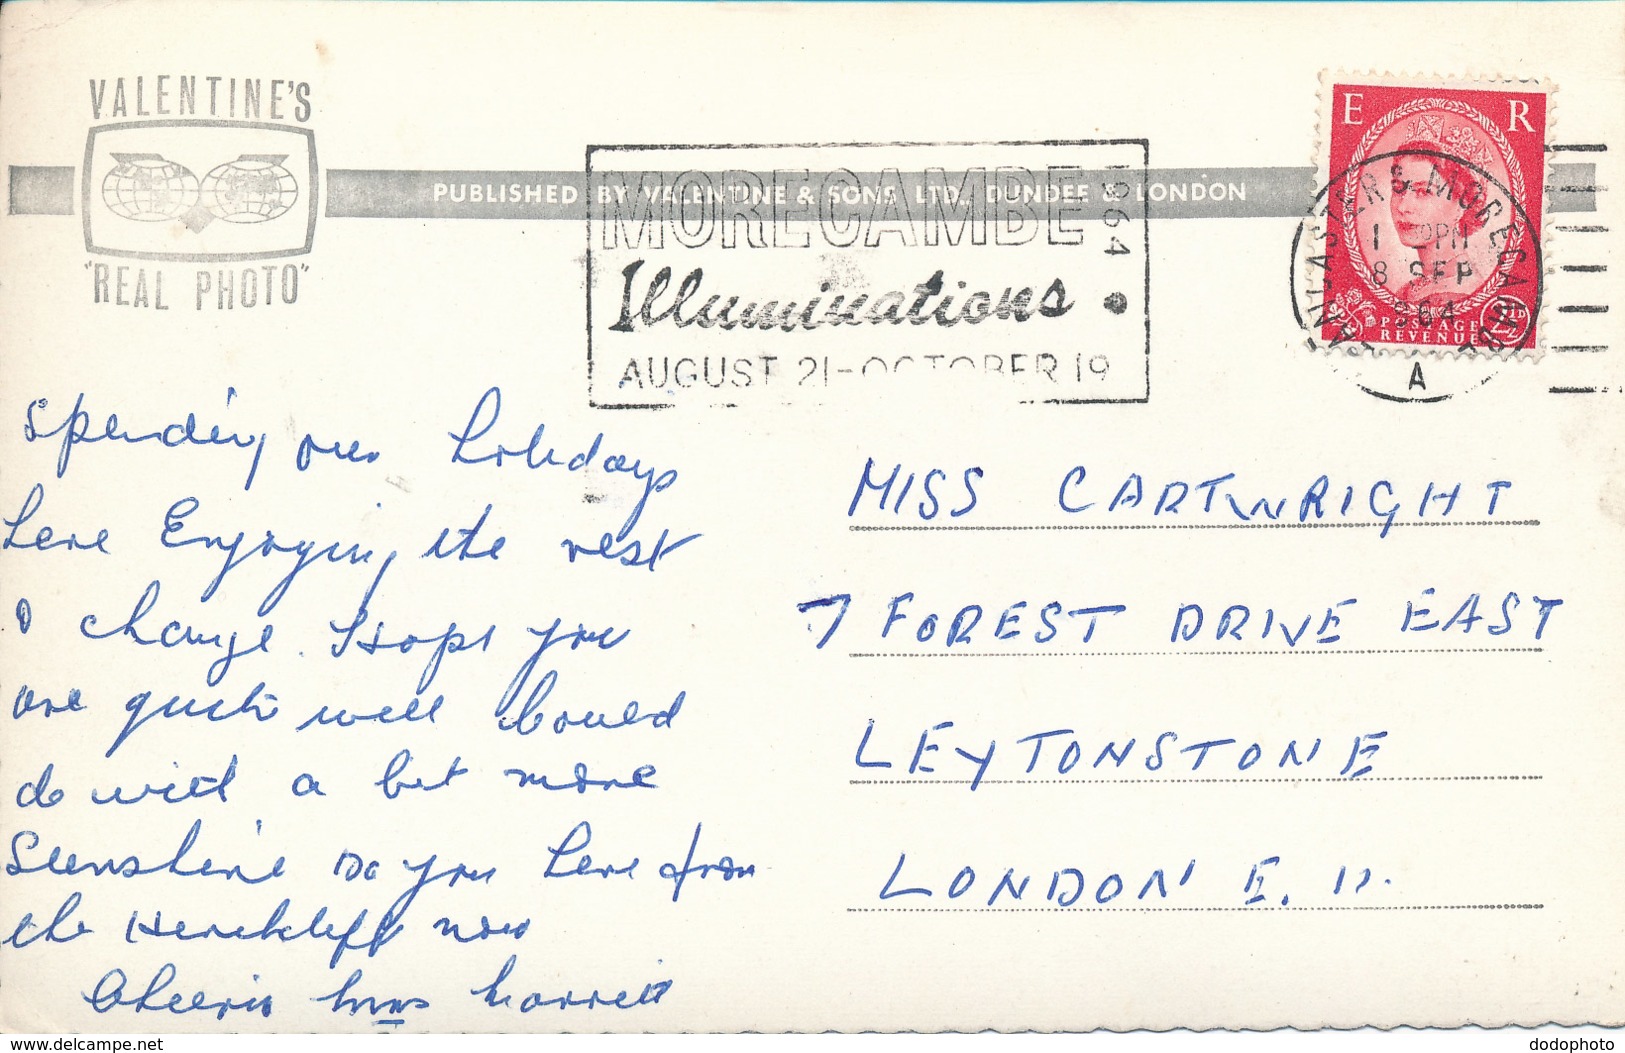 VALENTINE'S
"REAL PHOTO"
PUBLISHED BY VALENTINE & SONS, LTD., DUNDEE & LONDON
MORECAMBE 1964
Illuminations
AUGUST 21-OCTOBER 19
E R
POSTAGE REVENUE 2½D
LANCASTER & MORECAMBE
8 SEP
1964
A
Spending our holidays
here Enjoying the rest
& change. Hope you
are quite well Could
do with a bit more
Sunshine Do you hear from
the now
Cheerio Mrs
MISS CARTWRIGHT
7 FOREST DRIVE EAST
LEYTONSTONE
LONDON E. 11.
delcampe.net
dodophoto